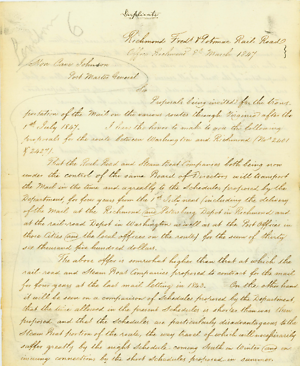 Duplicate
Richmond Fred. & Potomac Rail Road
Office Richmond 8th March 1847
Hon Cave Johnson
Post Master General
Sir
Proposals being invited for the trans
portation of the Mail on the various routes through Virginia after the
1st July 1847. I have the honor to make to you the following
proposals for the route between Washington and Richmond (Nos 2401
That the Rail Road and Steam Boat Companies both being now
under the control of the same Board of Directors will transport
the Mail in the time and agreeably to the Schedules proposed by the
Department, for four years from the 1st July next (including the delivery
of the Mail at the Richmond and Petersburg Depot in Richmond and
at the rail road Depot in Washington as well as at the Post Offices in
those cities and the local offices on the route) for the sum of thirty
six thousand five hundred dollars.
The above offer is somewhat higher than that at which the
rail road and Steam Boat Companies proposed to contract for the mail
for four years at the last mail letting in 1843. On the other hand
it will be seen on a comparison of Schedules proposed by the Department
that the time allowed in the present Schedules is shorter than was then
proposed and that the Schedules are particularly disadvantageous to the
Steam Boat portion of the route, the way travel of which will necessarily
suffer greatly by the night Schedule coming South in winter and
missing connections by the short Schedules proposed in summer.